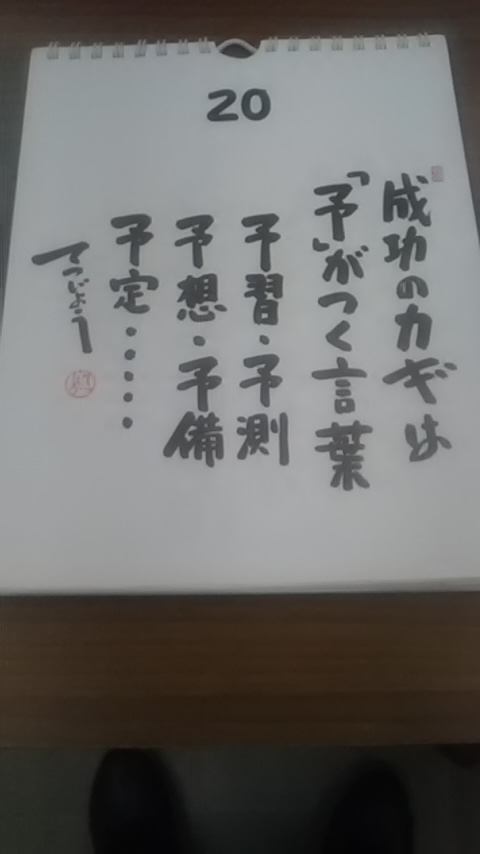 20
成功のカギは
「予」がつく言葉
予習・予測
予想・予備
予定・・・・・
てつじょう